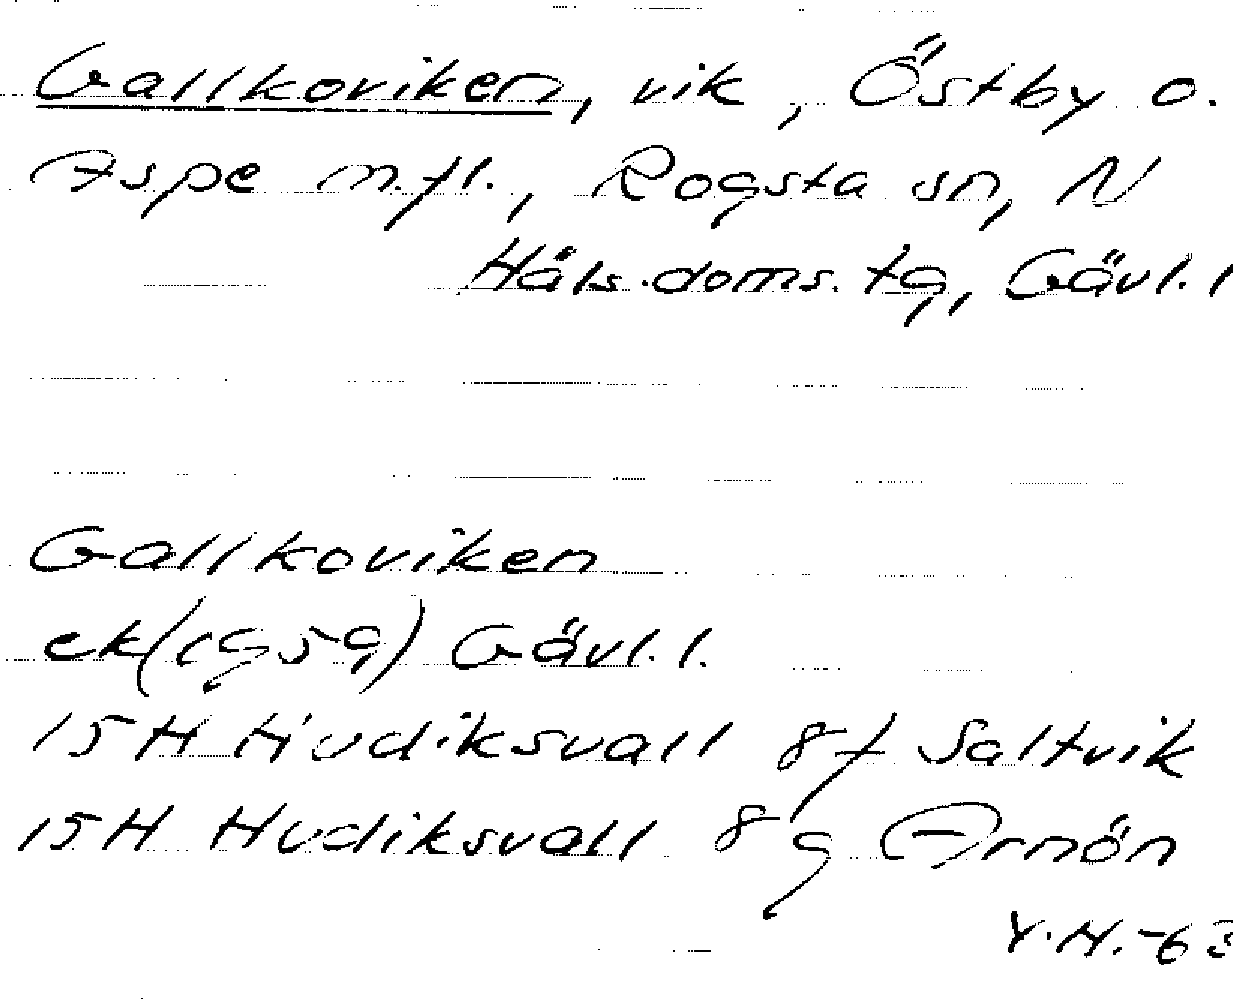 Gallkoviken, vik, Östby o.
Aspe m.fl., Rogsta sn, N
Häls.doms.tg, Gävl.l
Gallkoviken
ek(1959) Gävl.l.
15H Hudiksvall 8f Saltvik
15H Hudiksvall 8g Arnön
Y.H.-63